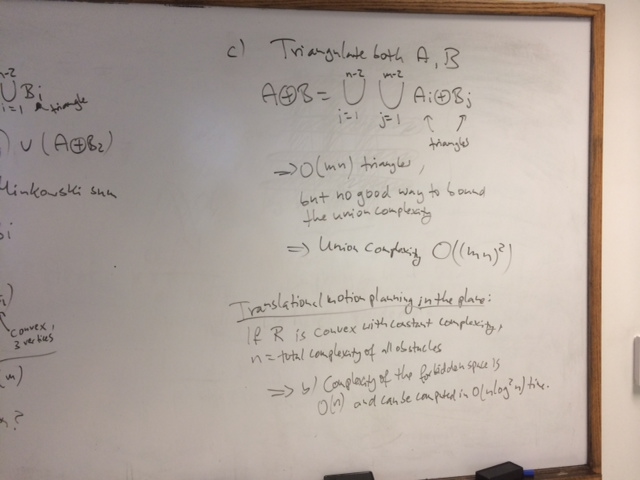 n-2
∪ Bi
i=1 triangle
) ∪ (A⊕B2)
Minkowski sum
convex,
3 vertices
(m)
c) Triangulate both A, B
n-2 m-2
A⊕B = ∪ ∪ Ai⊕Bj
i=1 j=1
triangles
⇒ O(mn) triangles,
but no good way to bound
the union complexity
⇒ Union Complexity O((mn)²)
Translational motion planning in the plane:
If R is convex with constant complexity,
n = total complexity of all obstacles
⇒ b) Complexity of the forbidden space is
O(n) and can be computed in O(n log² n) time.